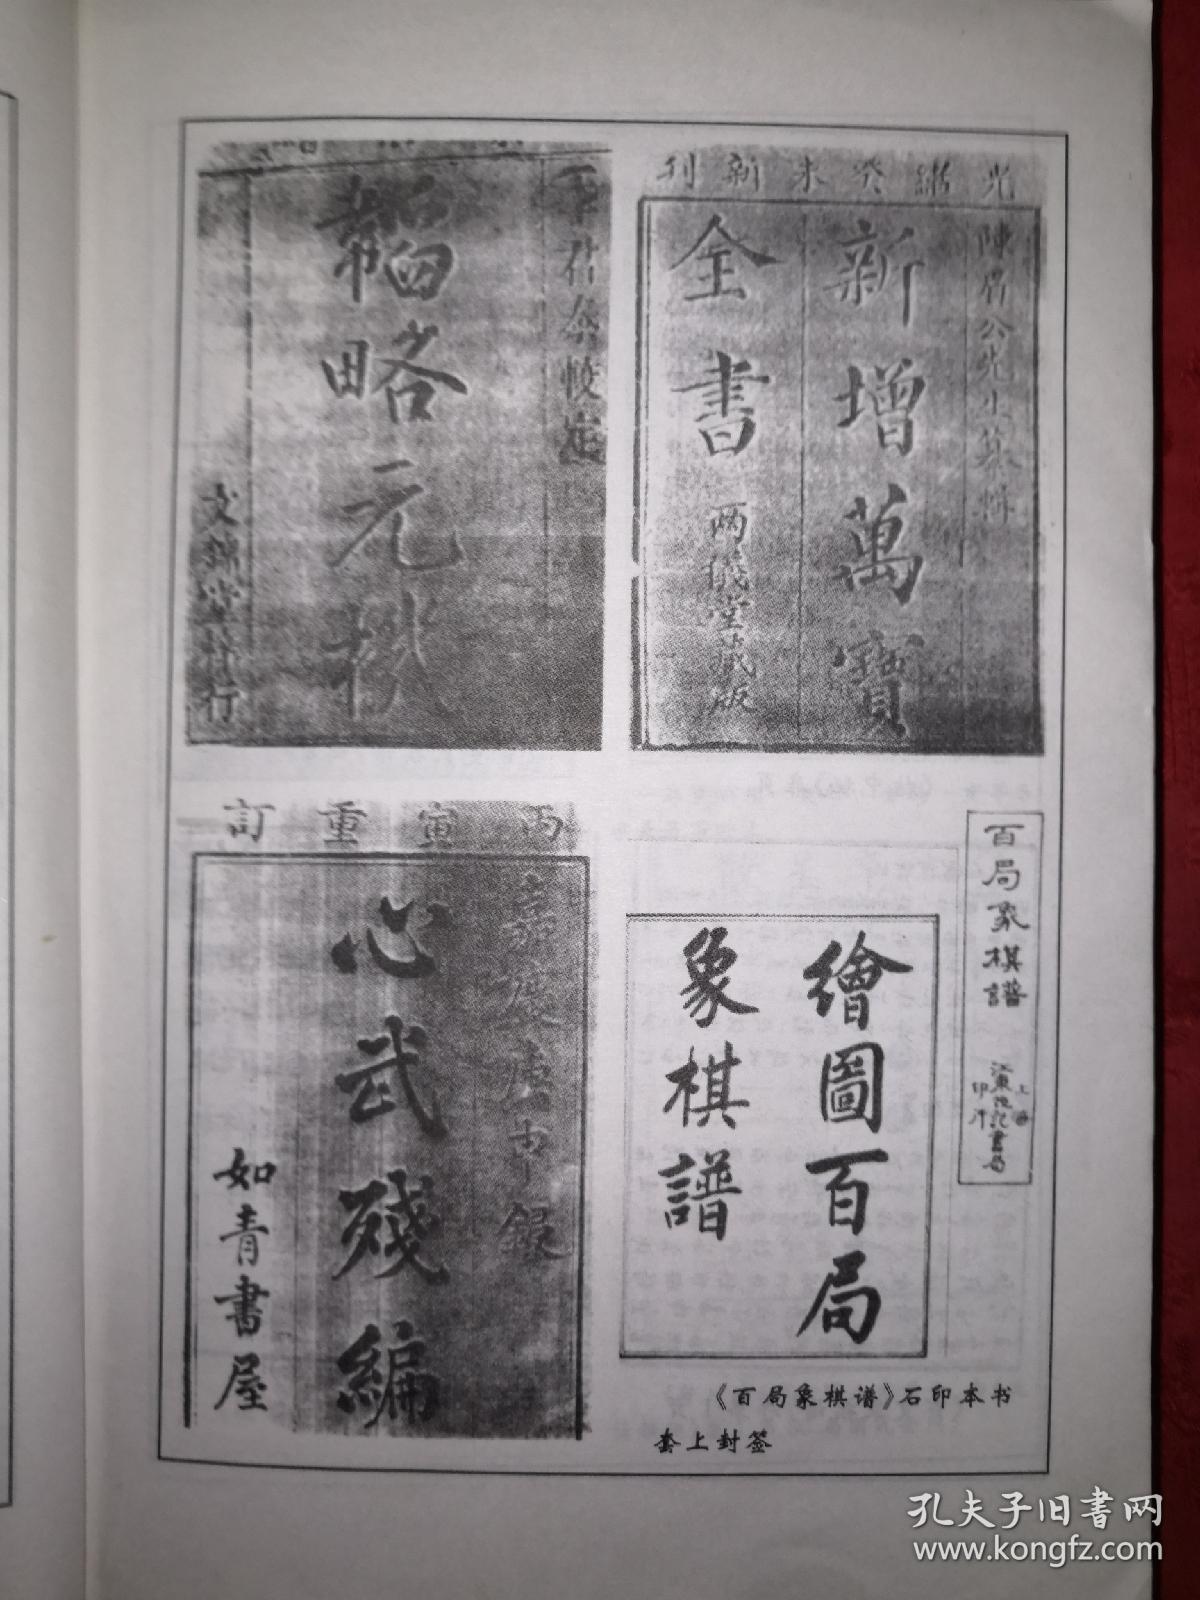 光緒癸未新刊
陳眉公先生集輯
新增萬寶
全書
两儀堂藏版
韜略元機
文錦堂梓行
百局象棋譜
上海
書局
繪圖百局
象棋譜
《百局象棋谱》石印本书
套上封签
丙寅重訂
心武殘編
如青書屋
孔夫子旧书网
www.kongfz.com